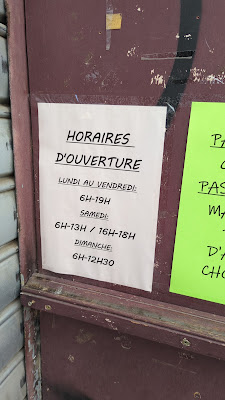 HORAIRES
D'OUVERTURE
LUNDI AU VENDREDI:
6H-19H
SAMEDI:
6H-13H / 16H-18H
DIMANCHE:
6H-12H30
PAS
D'A